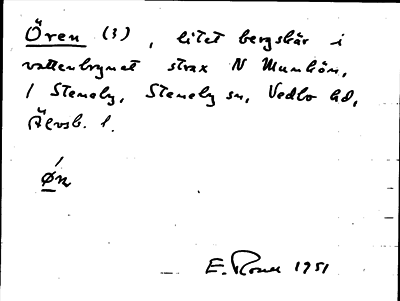 Ören (3), litet bergskär i
vattenbrynet strax N Munkön,
1 Steneby, Steneby sn, Vedbo hd,
Älvsb. l.
Øn
E. 1951